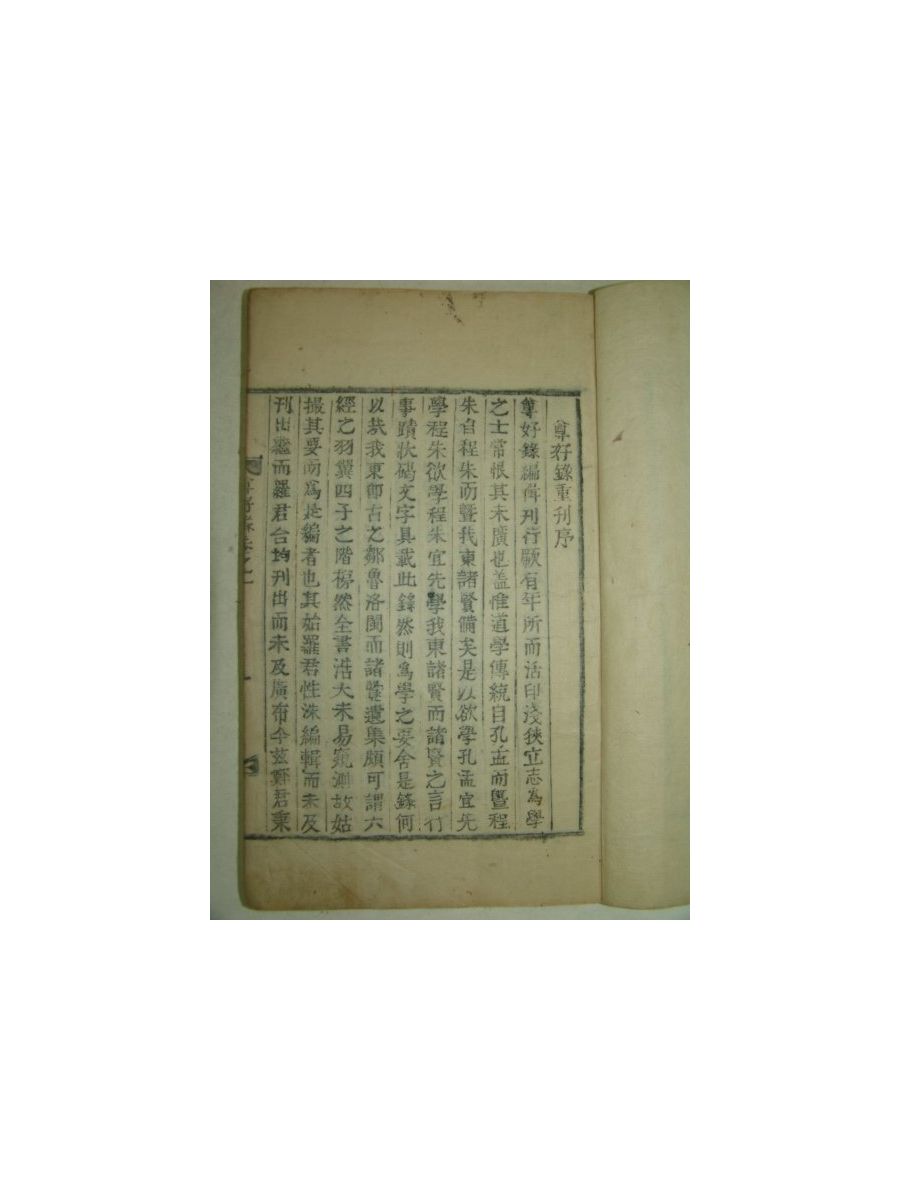 尊好錄重刊序
尊好錄編輯刊行厥有年所而活印淺狹宜志為學
之士常恨其未廣也盖惟道學傳統自孔孟而曁程
朱自程朱而曁我東諸賢備矣是以欲學孔孟宜先
學程朱欲學程朱宜先學我東諸賢而諸賢之言行
事蹟狀碣文字具載此錄然則爲學之要舍是錄何
以㢤我東卽古之鄒魯洛閩而諸賢遺集頗可謂六
經之羽翼四子之階梯然全書浩大未易窺測故姑
撮其要而爲是編者也其始羅君性洙編輯而未及
刊出繼而羅君台均刊出而未及廣布今玆羅君秉
尊好錄卷之一